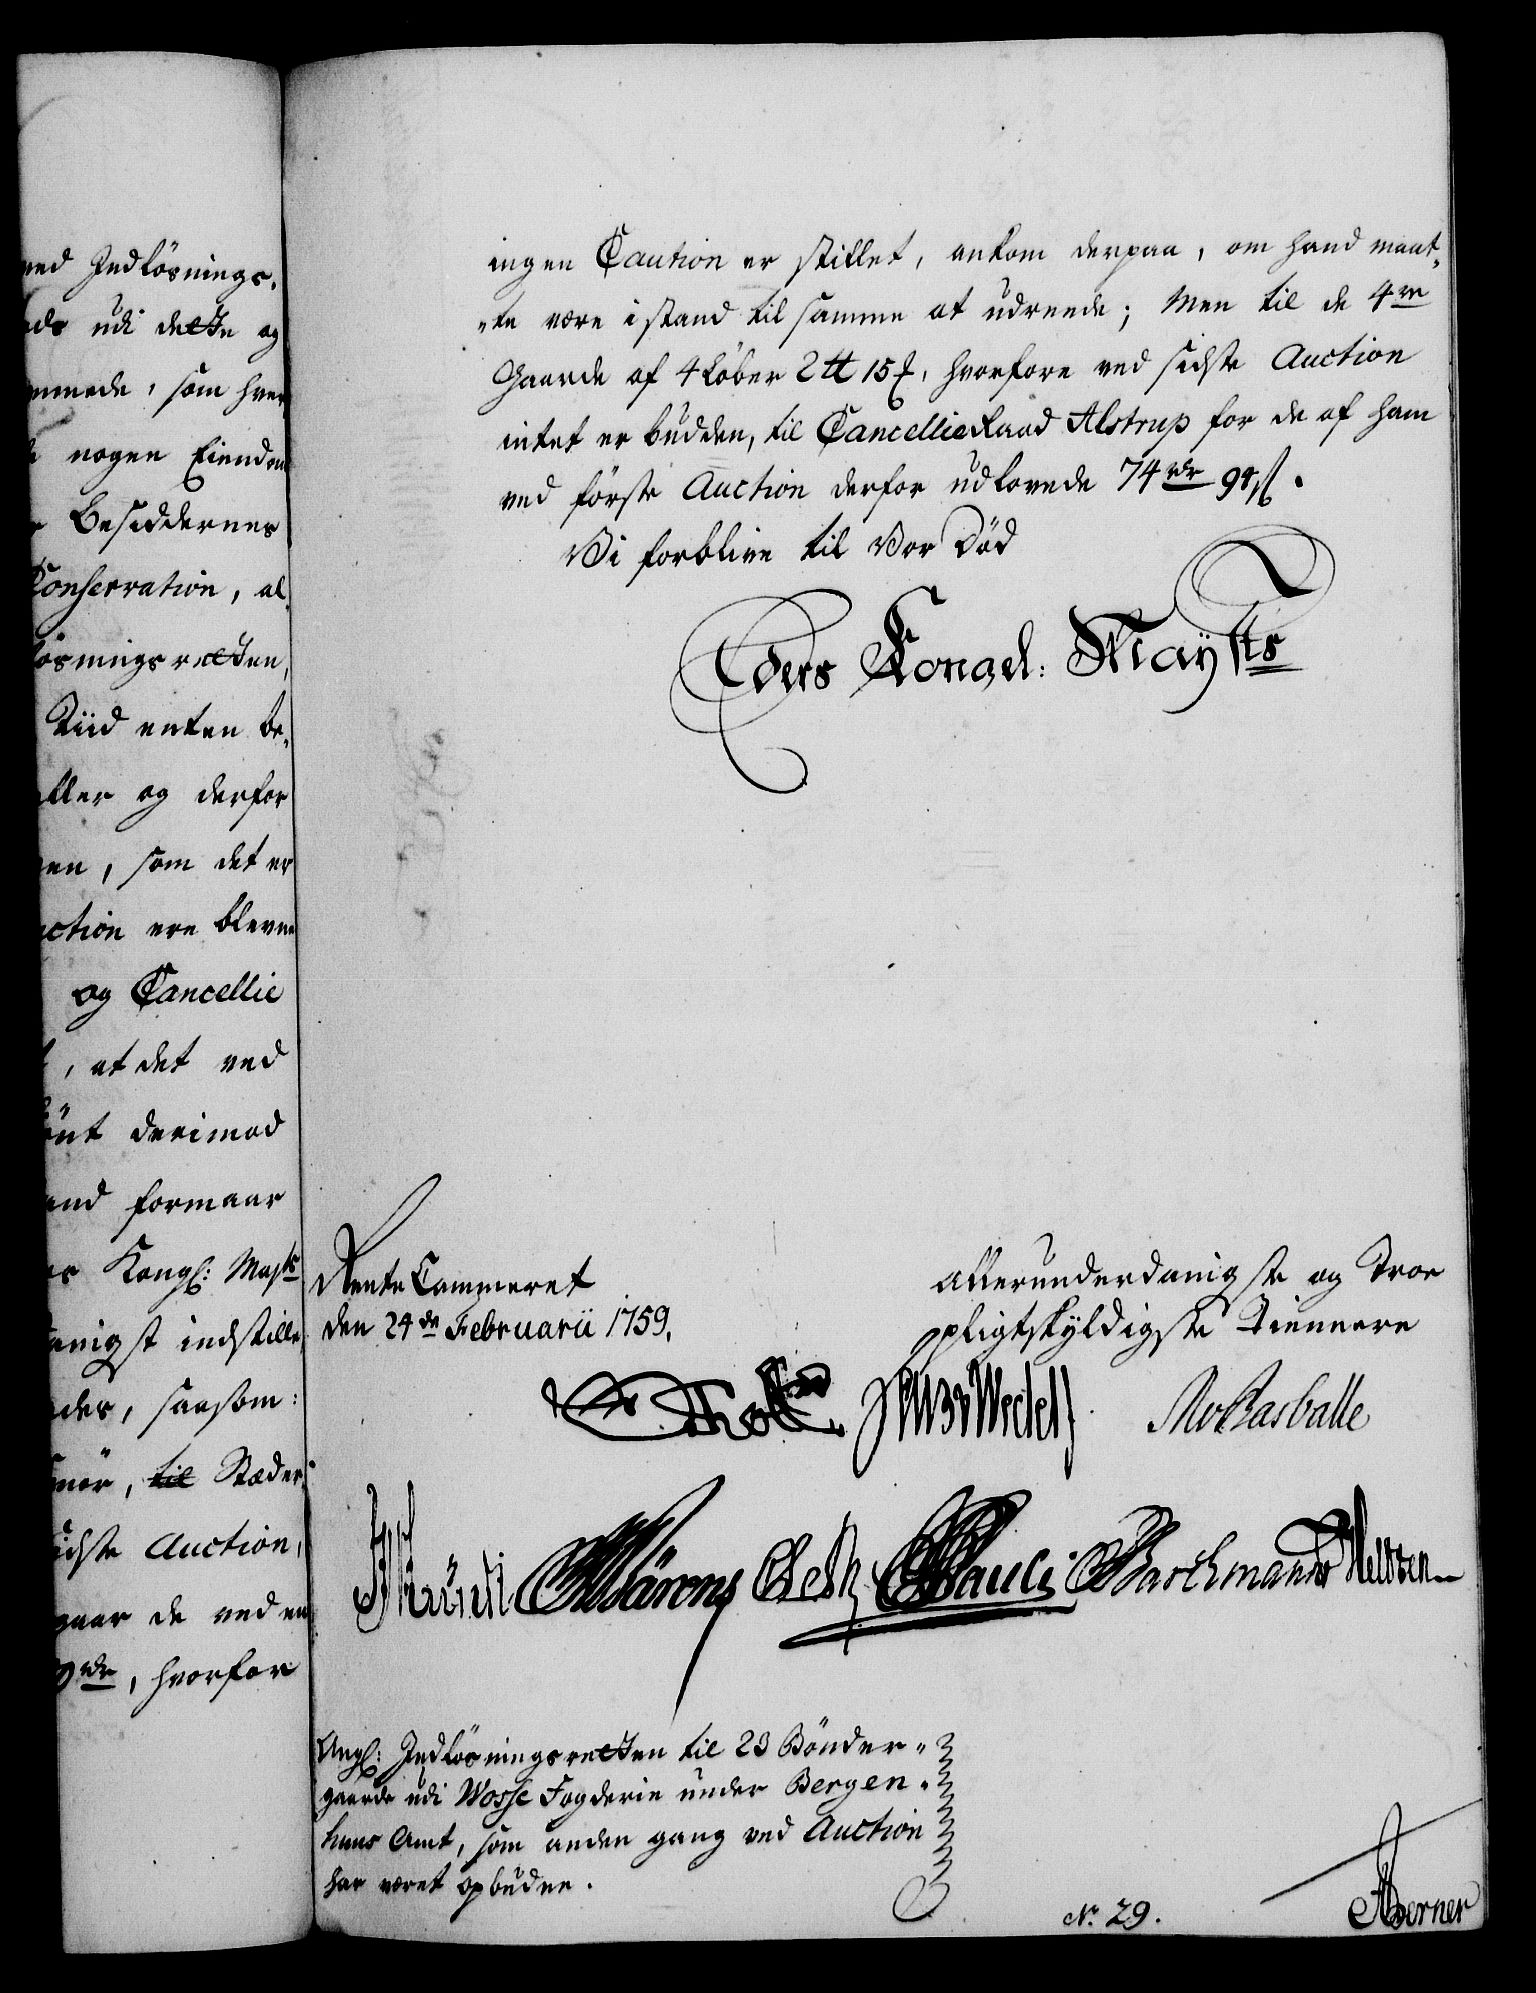 ved Indløsnings,
udi dette og
som hver
nogen Eiendom
Besiddernes
Conservation, al,
løsningsretten,
Tiid enten be,
eller og derfor
som det er
Auction ere blevne
og Cancellie
, at det ved
derimod
formaar
Kongl: Mayts
indstille
saasom:
til Stæder
sidste Auction,
de ved en
rdr, hvorfor
ingen Caution er stillet, ankom derpaa, om hand maat,
„te være i stand til samme at udreede; Men til de 4re
Gaarde af 4 Løber 2 ℔ 15 , hvorfore ved sidste Auction
intet er budden, til CancellieRaad Alstrup for de af ham
ved første Auction derfor udlovede 74 rdr 94 ß.
Vi forblive til Vor Død
Eders Kongel: Mayts
RenteCammeret
den 24de Februarii 1759.
allerunderdanigste og Troe
pligtskyldigste Tiennere
Holst Wedel Rasballe
Pauli
Angl: Indløsningsretten til 23 Bønder„
gaarde udi Wosse Fogderie under Bergen„
huus Amt, som anden gang ved Auction
har været opbudne.
No 29.
Berner